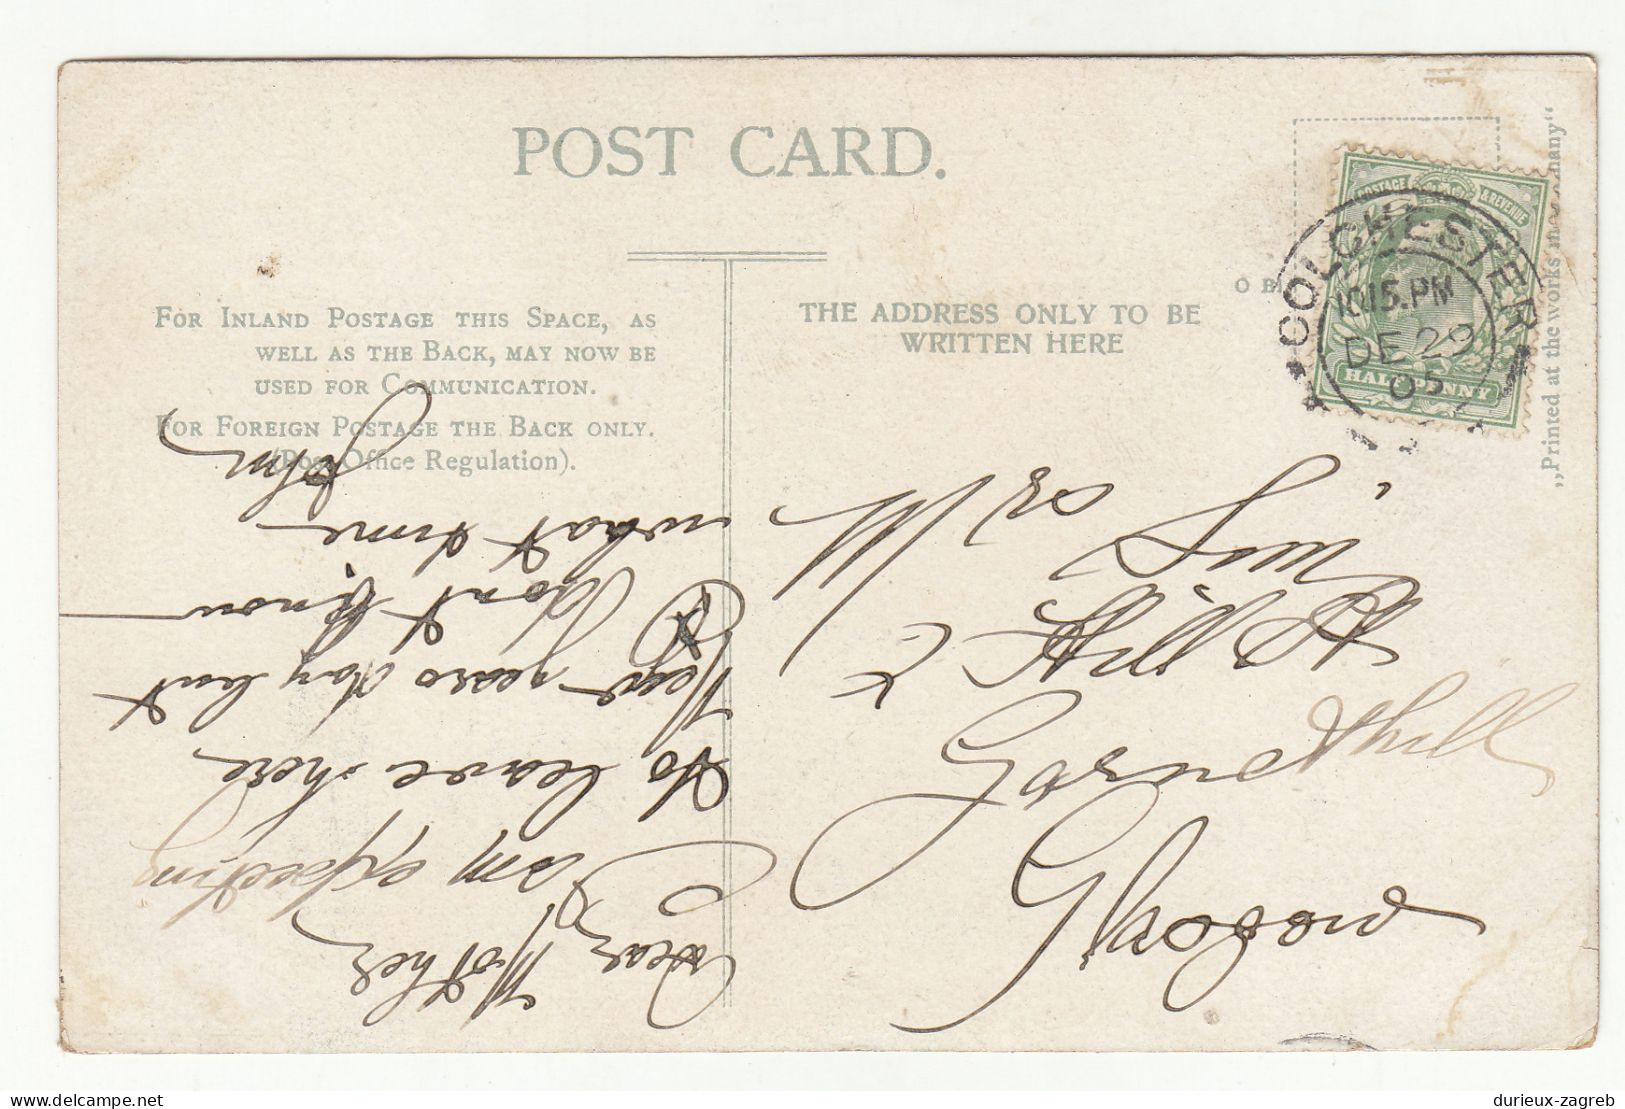 POST CARD.
FOR INLAND POSTAGE THIS SPACE, AS
WELL AS THE BACK, MAY NOW BE
USED FOR COMMUNICATION.
FOR FOREIGN POSTAGE THE BACK ONLY.
(Post Office Regulation).
THE ADDRESS ONLY TO BE
WRITTEN HERE
„Printed at the works
POSTAGE & REVENUE
HALFPENNY
COLCHESTER
10.15.PM
DE 29
05
Dear Mother
I am expecting
to leave here
New years day but
I dont know
what time
John
Hill
Garnethill
Glasgow
durieux-zagreb